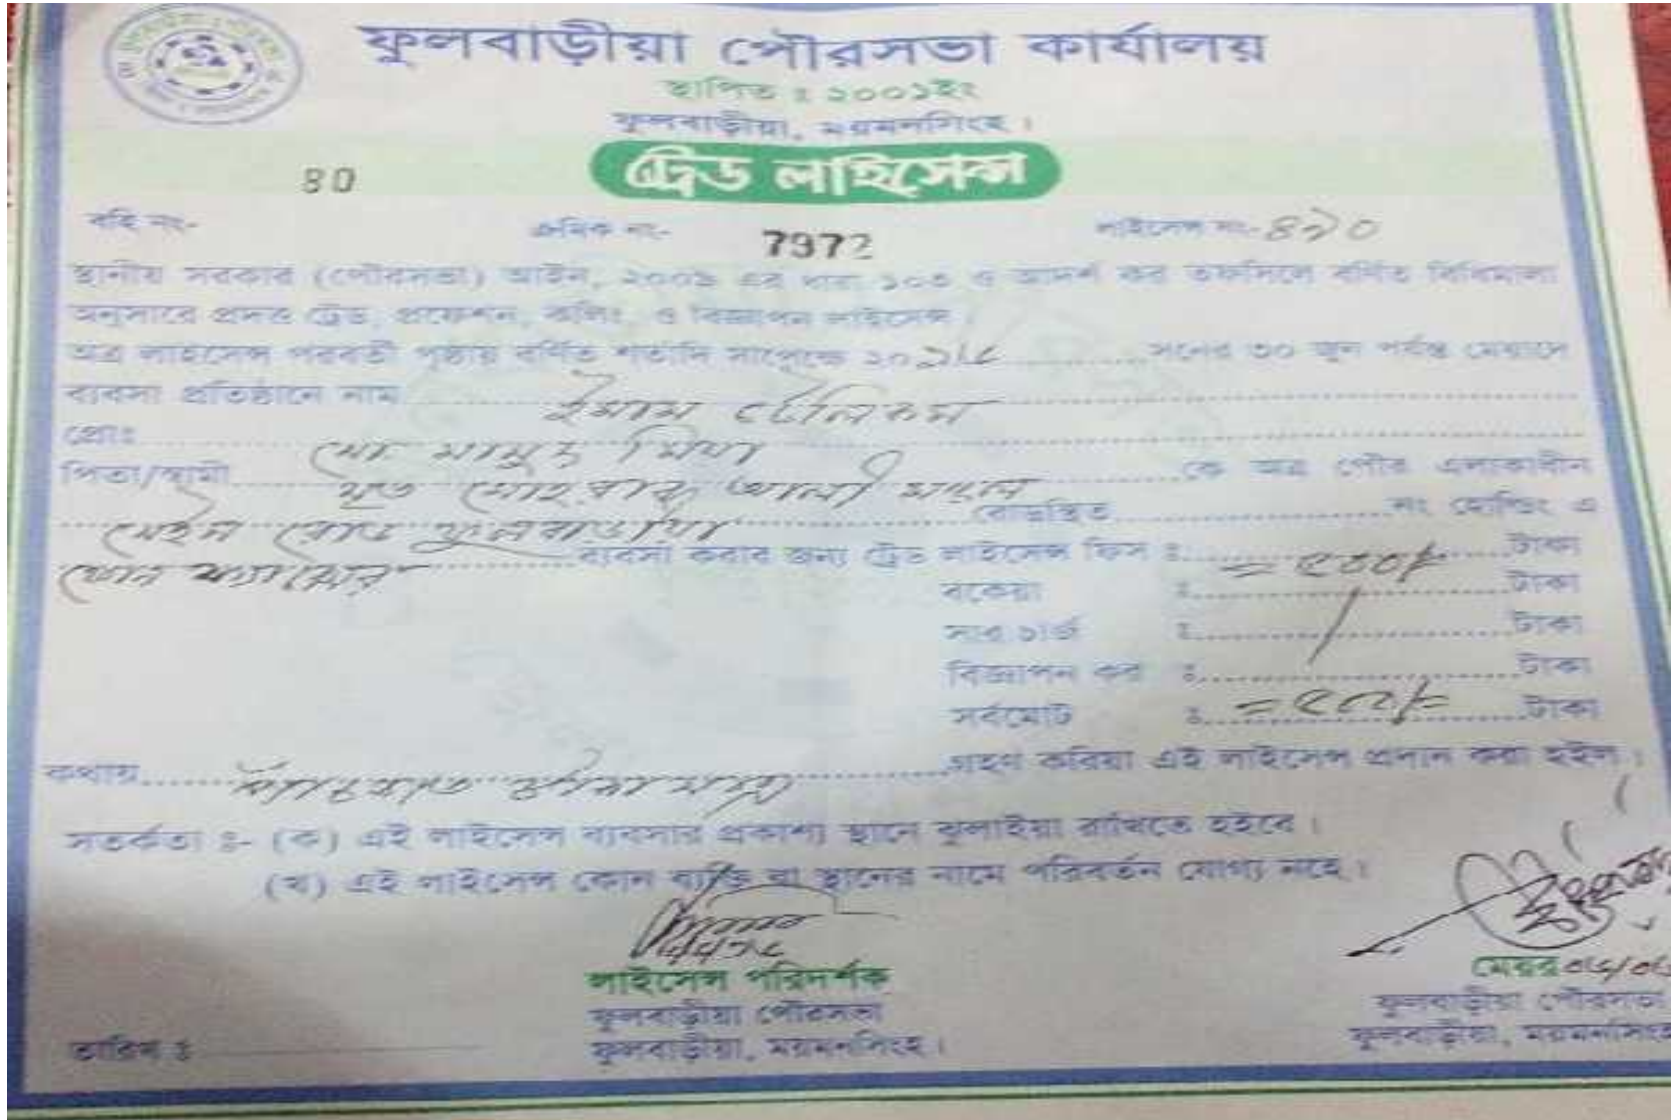 ফুলবাড়ীয়া পৌরসভা কার্যালয়
স্থাপিত ঃ ২০০১ইং
ফুলবাড়ীয়া, ময়মনসিংহ।
ট্রেড লাইসেন্স
বহি নং- 80 ক্রমিক নং- 7972 লাইসেন্স নং- ৪৯০
স্থানীয় সরকার (পৌরসভা) আইন, ২০০৯ এর ধারা ১০৩ ও আদর্শ কর তফসিলে বর্ণিত বিধিমালা
অনুসারে প্রদত্ত ট্রেড, প্রফেশন, কলিং, ও বিজ্ঞাপন লাইসেন্স।
অত্র লাইসেন্স পরবর্তী পৃষ্ঠায় বর্ণিত শর্তাদি সাপেক্ষে ২০ সনের ৩০ জুন পর্যন্ত মেয়াদে
ব্যবসা প্রতিষ্ঠানে নাম ইমাম টেলিকম
প্রোঃ মোঃ মাসুদ মিয়া
পিতা/স্বামী মৃত আলী কে অত্র পৌর এলাকাধীন
মেইন রোড ফুলবাড়ীয়া রোডস্থিত নং হোল্ডিং এ
ব্যবসা করার জন্য ট্রেড লাইসেন্স ফিস ঃ =৫০০/= টাকা
বকেয়া ঃ টাকা
সার চার্জ ঃ টাকা
বিজ্ঞাপন কর ঃ টাকা
সর্বমোট ঃ =৫০০/= টাকা
কথায় পাঁচশত টাকা মাত্র গ্রহণ করিয়া এই লাইসেন্স প্রদান করা হইল।
সতর্কতা ঃ- (ক) এই লাইসেন্স ব্যবসার প্রকাশ্য স্থানে ঝুলাইয়া রাখিতে হইবে।
(খ) এই লাইসেন্স কোন ব্যক্তি বা স্থানের নামে পরিবর্তন যোগ্য নহে।
লাইসেন্স পরিদর্শক
ফুলবাড়ীয়া পৌরসভা
ফুলবাড়ীয়া, ময়মনসিংহ।
মেয়র
ফুলবাড়ীয়া পৌরসভা
ফুলবাড়ীয়া, ময়মনসিংহ
তারিখ ঃ